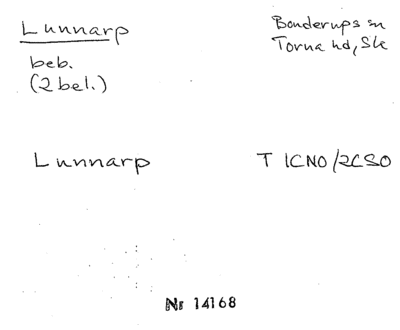 Lunnarp
Bonderups sn
Torna hd, Sk
beb.
(2 bel.)
Lunnarp
T 1CNO/2CSO
Nr 14168